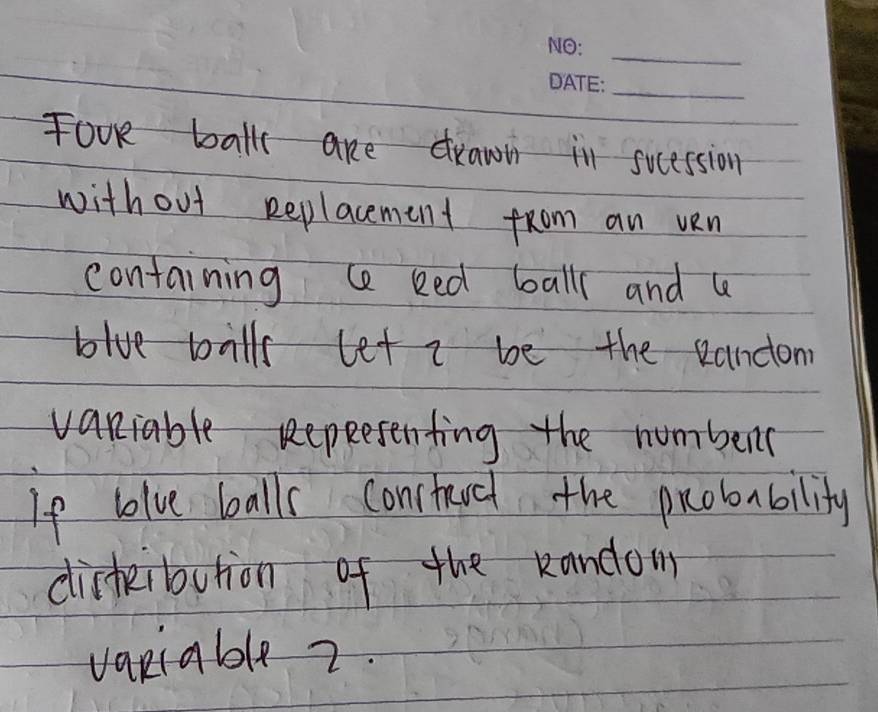 NO:
DATE:
Four balls are drawn in sucession
without replacement from an urn
containing red balls and
blue balls let z be the random
variable representing the numbers
if blue balls construct the probability
distribution of the random
variable z.